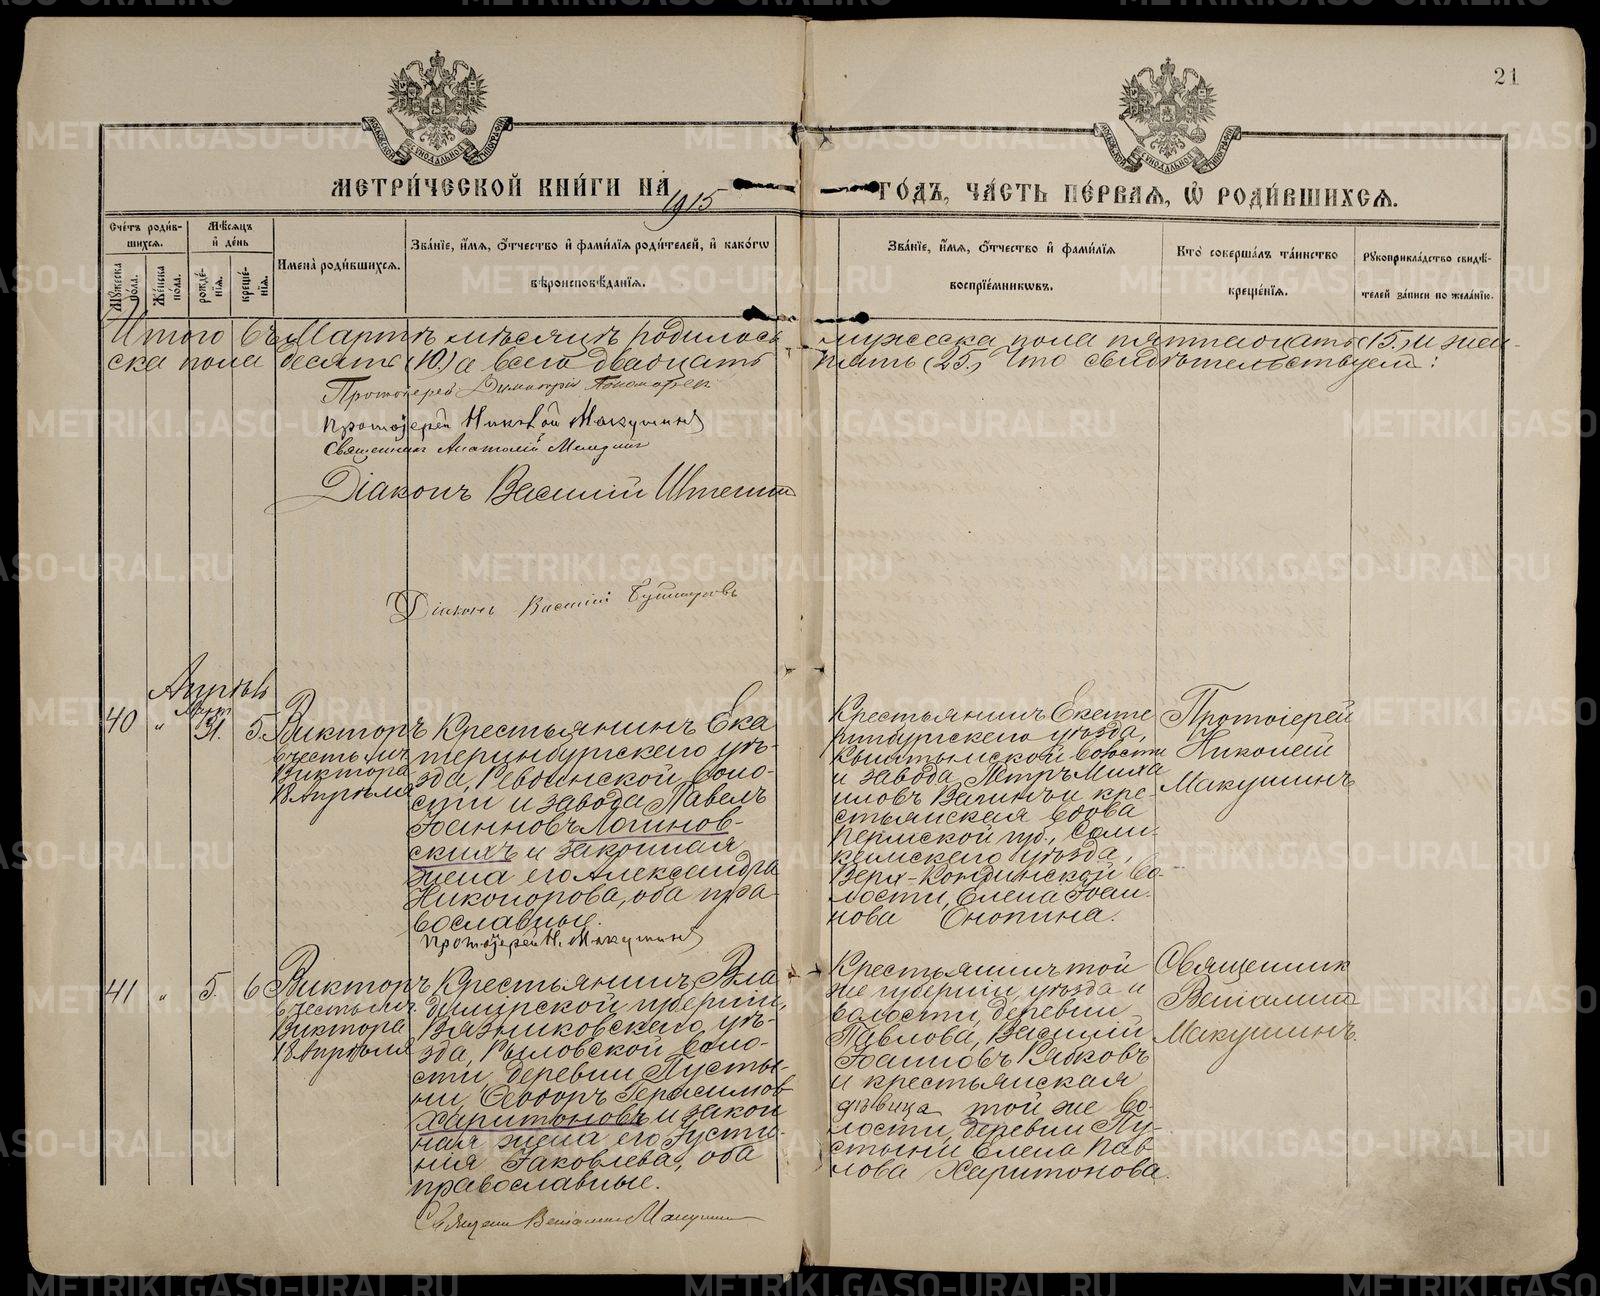 21
МЕТРИ́ЧЕСКОЙ КНИ́ГИ НА́ 1915 ГО́ДЪ, ЧА́СТЬ ПЕ́РВАЯ, Ѡ҆ РОДИ́ВШИХСЯ.
Сче́тъ роди́в-
шихся.
Му́жеска по́ла.
Же́нска по́ла.
Мѣ́сяцъ
и҆ де́нь
рожде́-
нїя.
креще́-
нїя.
Имена̀ роди́вшихся.
Зва́нїе, и҆́мя, ѻ҆́тчество и҆ фами́лїя роди́телей, и҆ како́гѡ
вѣроисповѣ́данїя.
Зва́нїе, и҆́мя, ѻ҆́тчество и҆ фами́лїя
воспрїе́мникѡвъ.
Кто̀ соверша́лъ та́инство
креще́нїя.
Рꙋкоприкла́дство свидѣ́-
телей за́писи по жела́нїю.
Итого въ Мартѣ мѣсяцѣ родилось мужеска пола пятнадцать (15.) и жен-
ска пола десять (10.) а всего двадцать пять (25.) Что свидѣтельствуем:
Протоіерей Димитрій Пономарев
Протоіерей Николай Макушинъ
Священник Анатолій
Діаконъ Василій
Діаконъ Василій
Апрѣль
Март
40 " 31. 5.
Викторъ
въ честь мч.
Виктора
18 Апрѣля
Крестьянинъ Ека
теринбургскаго уѣ-
зда, Ревдинской воло-
сти и завода Павелъ
Іоанновъ Логинов-
скихъ и законная
жена его Александра
Никонорова, оба пра-
вославные.
Протоіерей Н. Макушинъ
Крестьянинъ Екате
ринбургскаго уѣзда,
Кыштымской волости
и завода Петръ Миха
иловъ Вагинъ и кре-
стьянская вдова
Пермской губ., Соли-
камскаго уѣзда,
Верх-Кондинской во-
лости, Елена Іоан-
нова Снопина.
Протоіерей
Николай
Макушинъ
41 " 5. 6
Викторъ
въ честь мч.
Виктора
18 Апрѣля
Крестьянинъ Вла
димірской губерніи,
Вязниковскаго уѣ-
зда, Рыловской воло-
сти, деревни Пусты-
ни, Ѳеодоръ Герасимов
Харитоновъ и закон
ная жена его Іусти-
нія Іаковлева, оба
православные.
Священ Веніамин Макушин
Крестьянинъ той
же губерніи, уѣзда и
волости, деревни
Павлова, Василій
Іоанновъ Рябковъ
и крестьянская
дѣвица той же во-
лости, деревни Пу-
стыни Елена Пав
лова Харитонова.
Священник
Веніаминъ
Макушинъ.
METRIKI.GASO-URAL.RU